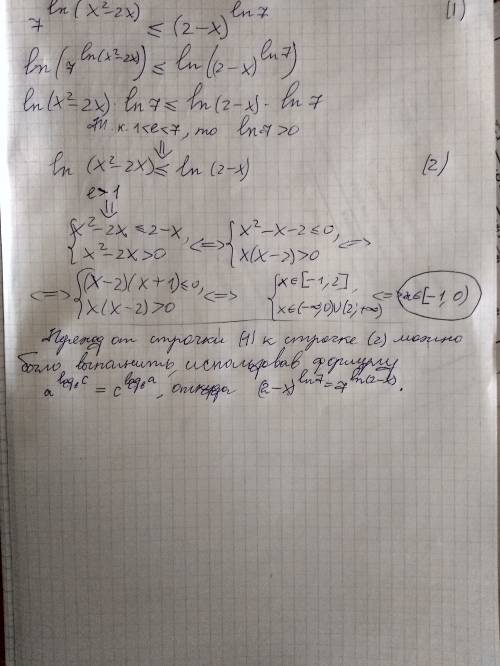 7^ln(x²-2x) ≤ (2-x)^ln7 (1)
ln(7^ln(x²-2x)) ≤ ln((2-x)^ln7)
ln(x²-2x)·ln7 ≤ ln(2-x)·ln7
Т.к. 1<e<7, то ln7>0
⇓
ln(x²-2x) ≤ ln(2-x) (2)
e>1
⇓
{x²-2x ≤ 2-x, x²-2x>0 <=> {x²-x-2≤0, x(x-2)>0 <=>
<=> {(x-2)(x+1)≤0, x(x-2)>0 <=> {x∈[-1,2], x∈(-∞;0)∪(2;+∞) <=> x∈[-1,0)
Переход от строчки (1) к строчке (2) можно
было выполнить, использовав формулу
a^log_b c = c^log_b a, откуда (2-x)^ln7 = 7^ln(2-x).